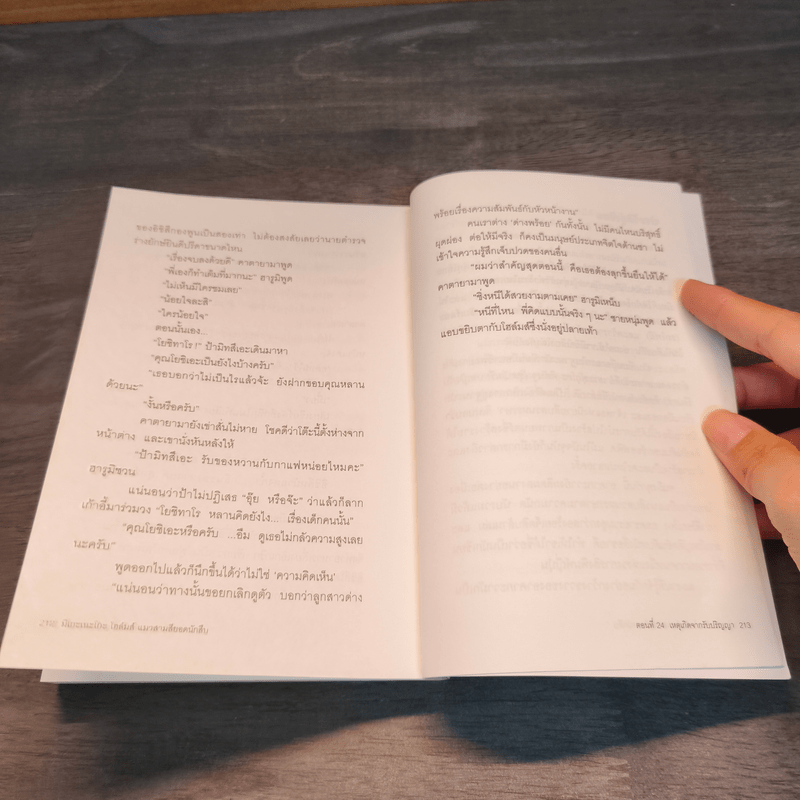 ของอิชิสึกองพูนเป็นสองเท่า ไม่ต้องสงสัยเลยว่านายตำรวจ
ร่างยักษ์ยินดีปรีดาขนาดไหน
"เรื่องจบลงด้วยดี" คาตายามาพูด
"พี่เองก็ทำเต็มที่มากนะ" ฮารูมิพูด
"ไม่เห็นมีใครชมเลย"
"น้อยใจละสิ"
"ใครน้อยใจ"
ตอนนั้นเอง...
"โยชิทาโร !" ป้ามิทสึเอะเดินมาหา
"คุณโยชิเอะเป็นยังไงบ้างครับ"
"เธอบอกว่าไม่เป็นไรแล้วจ้ะ ยังฝากขอบคุณหลาน
ด้วยนะ"
"งั้นหรือครับ"
คาตายามายังเข่าสั่นไม่หาย โชคดีว่าโต๊ะนี้ตั้งห่างจาก
หน้าต่าง และเขานั่งหันหลังให้
"ป้ามิทสึเอะ รับของหวานกับกาแฟหน่อยไหมคะ"
ฮารูมิชวน
แน่นอนว่าป้าไม่ปฏิเสธ "อุ๊ย หรือจ๊ะ" ว่าแล้วก็ลาก
เก้าอี้มาร่วมวง "โยชิทาโร หลานคิดยังไง... เรื่องเด็กคนนั้น"
"คุณโยชิเอะหรือครับ ...อืม ดูเธอไม่กลัวความสูงเลย
นะครับ"
พูดออกไปแล้วก็นึกขึ้นได้ว่าไม่ใช่ 'ความคิดเห็น'
"แน่นอนว่าทางนั้นขอยกเลิกดูตัว บอกว่าลูกสาวด่าง
212 มิเกะเนะโกะ โฮล์มส์ แมวสามสียอดนักสืบ
พร้อยเรื่องความสัมพันธ์กับหัวหน้างาน"
คนเราต่าง 'ด่างพร้อย' กันทั้งนั้น ไม่มีคนไหนบริสุทธิ์
ผุดผ่อง ต่อให้มีจริง ก็คงเป็นมนุษย์ประเภทจิตใจด้านชา ไม่
เข้าใจความรู้สึกเจ็บปวดของคนอื่น
"ผมว่าสำคัญสุดตอนนี้ คือเธอต้องลุกขึ้นยืนให้ได้"
คาตายามาพูด
"ซึ่งหนีได้สวยงามตามเคย" ฮารูมิเหน็บ
"หนีที่ไหน พี่คิดแบบนั้นจริง ๆ นะ" ชายหนุ่มพูด แล้ว
แอบขยิบตากับโฮล์มส์ซึ่งนั่งอยู่ปลายเท้า
ตอนที่ 24 เหตุเกิดจากรับปริญญา 213